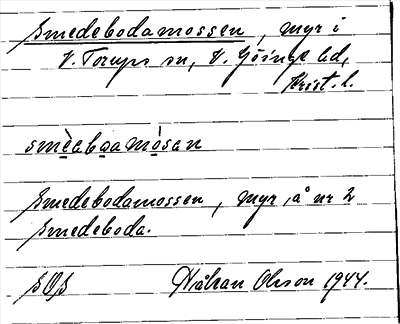 Smedebodamossen, myr i
V. Torups sn, V. Göinge hd,
Krist. l.
smèabaamósan
Smedebodamossen, myr, å nr 2
Smedeboda.
SOS Håkan Olsson 1944.